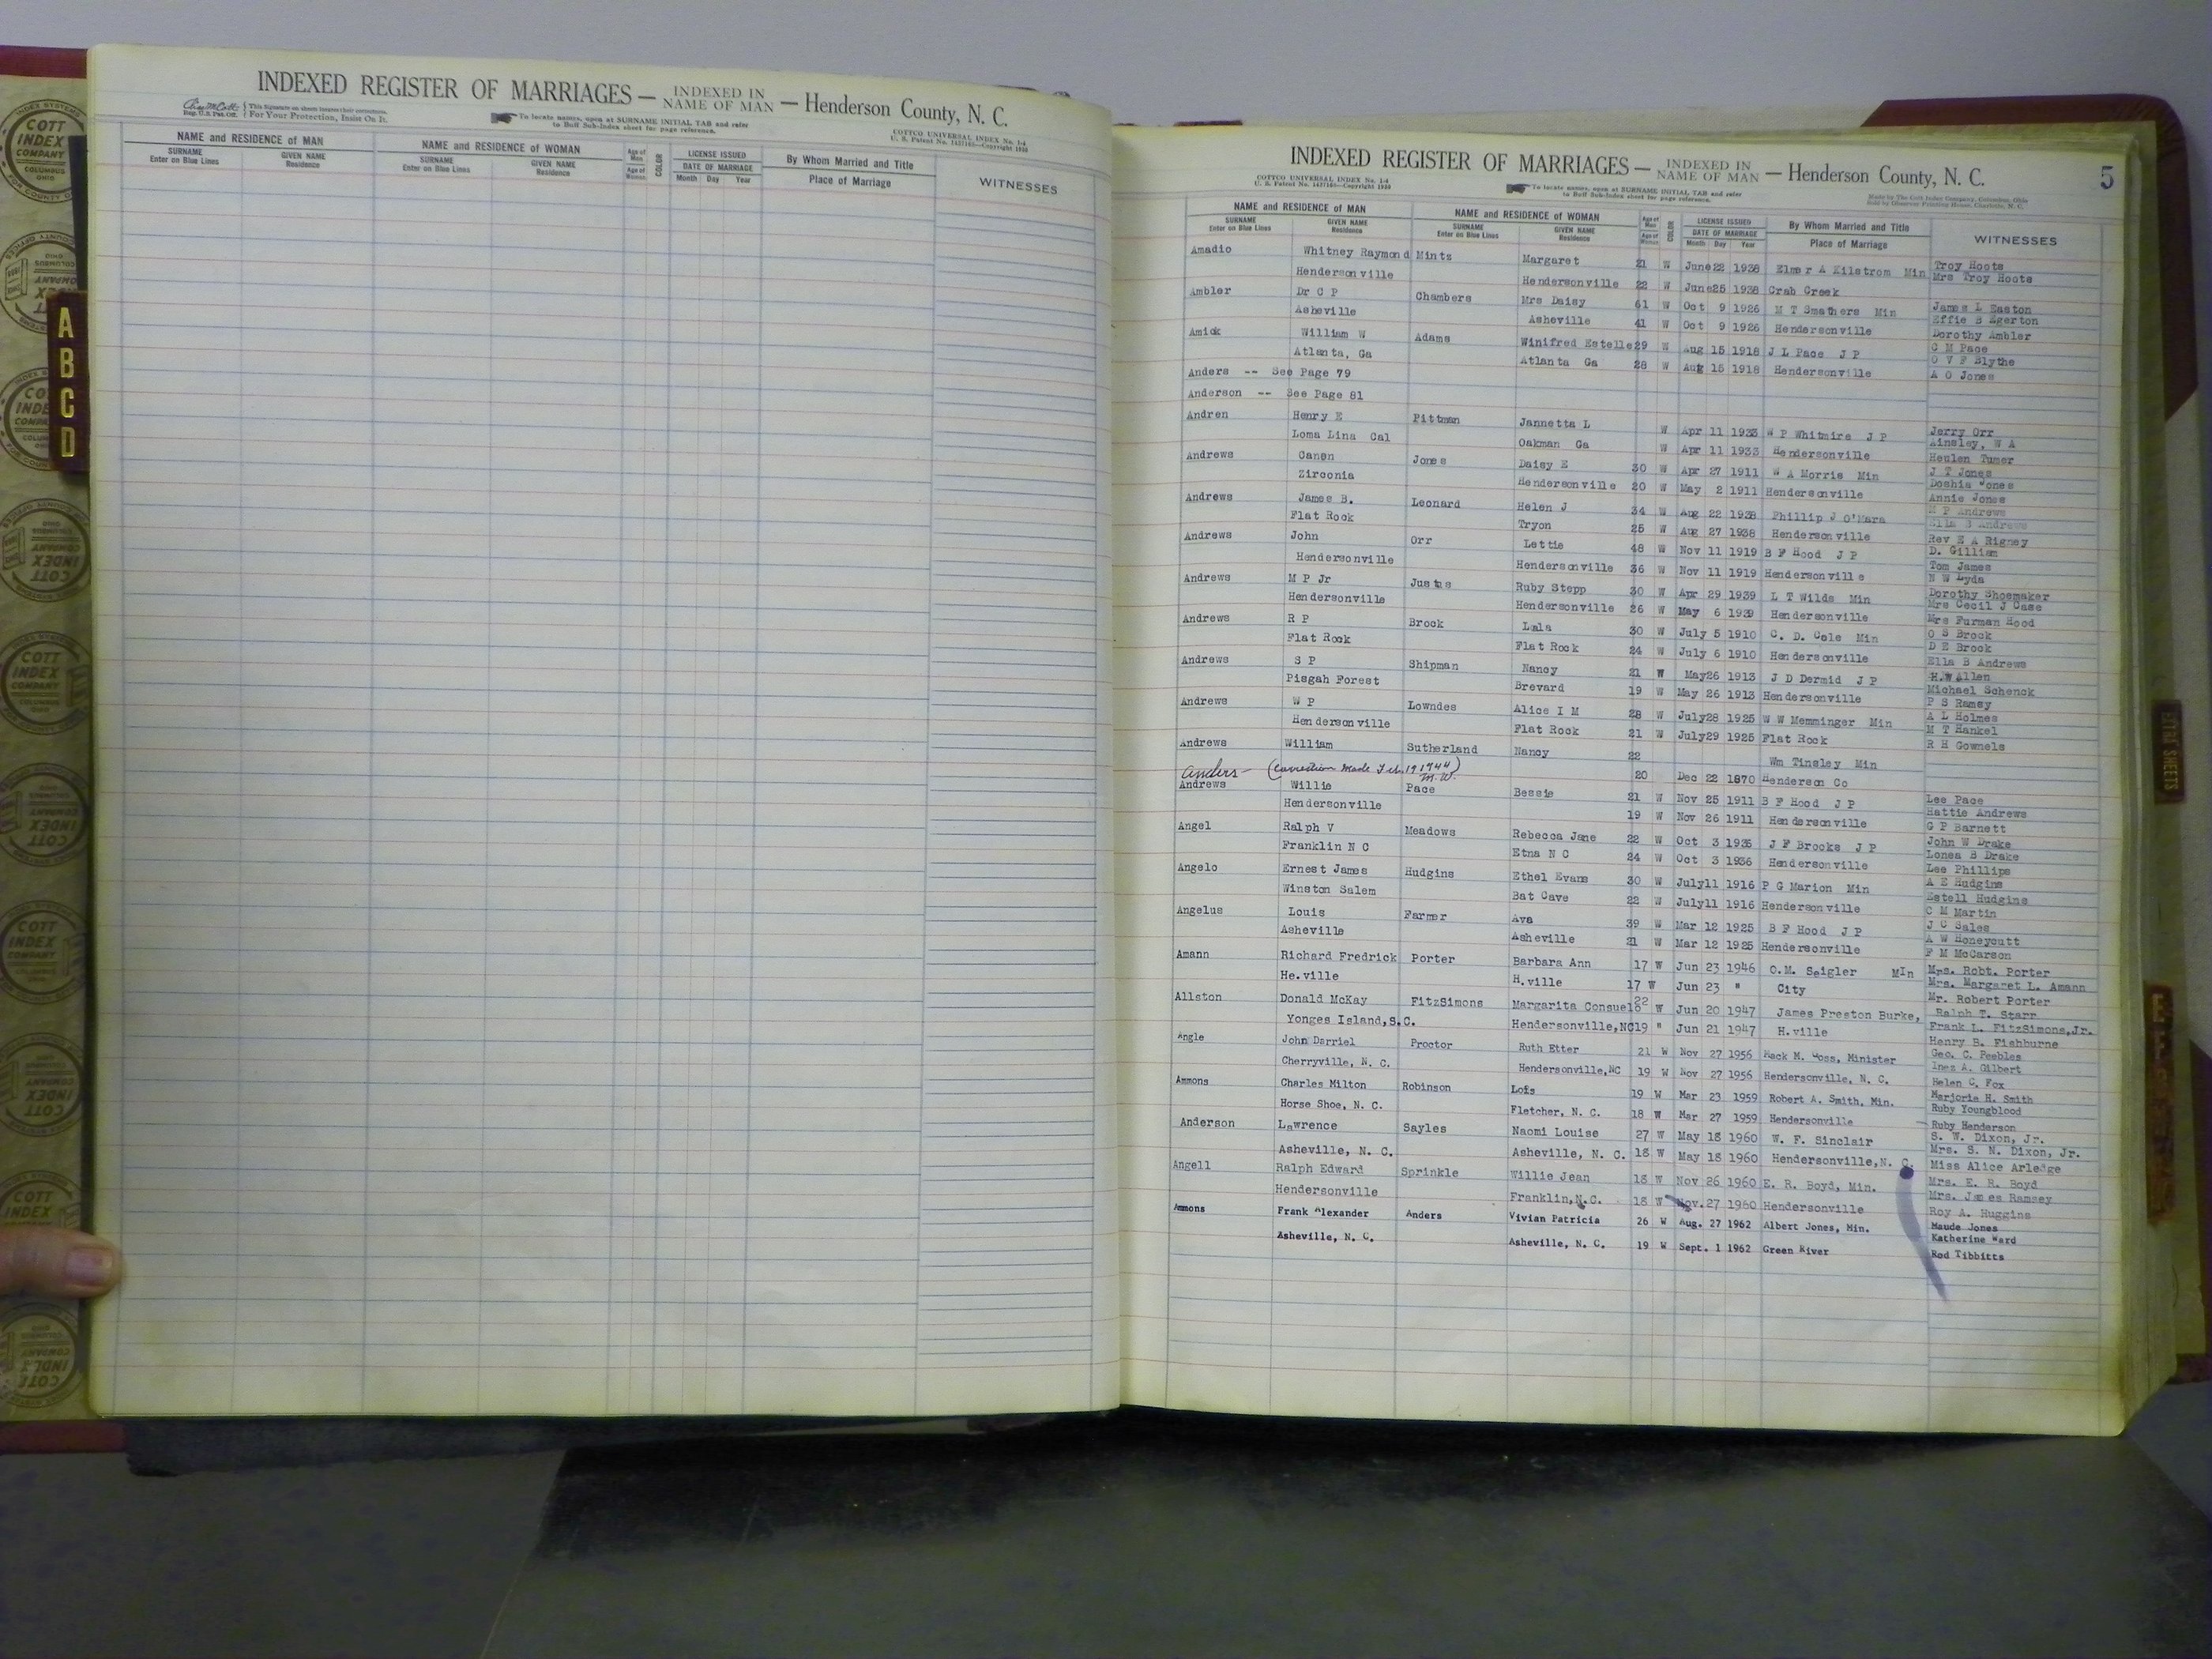 INDEXED REGISTER OF MARRIAGES — INDEXED IN NAME OF MAN — Henderson County, N. C.
This Signature on sheets locates their correctness. For Your Protection, Insist On It.
To locate names, open at SURNAME INITIAL TAB and refer to Buff Sub-Index sheet for page reference.
COTTCO UNIVERSAL INDEX No. 1-4
NAME and RESIDENCE OF MAN NAME and RESIDENCE OF WOMAN Age of Man Age of Woman COLOR LICENSE ISSUED By Whom Married and Title WITNESSES
SURNAME Enter on Blue Lines GIVEN NAME Residence SURNAME Enter on Blue Lines GIVEN NAME Residence DATE OF MARRIAGE Month Day Year Place of Marriage
COTT INDEX COMPANY COLUMBUS OHIO
A B C D
INDEXED REGISTER OF MARRIAGES — INDEXED IN NAME OF MAN — Henderson County, N. C. 5
COTTCO UNIVERSAL INDEX No. 1-4
To locate names, open at SURNAME INITIAL TAB and refer to Buff Sub-Index sheet for page reference.
Made by The Cott Index Company, Columbus, Ohio
Sold by Observer Printing House, Charlotte, N. C.
NAME and RESIDENCE OF MAN NAME and RESIDENCE OF WOMAN Age of Man Age of Woman COLOR LICENSE ISSUED By Whom Married and Title WITNESSES
SURNAME Enter on Blue Lines GIVEN NAME Residence SURNAME Enter on Blue Lines GIVEN NAME Residence DATE OF MARRIAGE Month Day Year Place of Marriage
Amadio Whitney Raymond Mintz Margaret 21 W June 22 1938 Elmer A Kilstrom Min Troy Hoots
Hendersonville Hendersonville 22 W June 25 1938 Crab Creek Mrs Troy Hoots
Ambler Dr C P Chambers Mrs Daisy 61 W Oct 9 1926 M T Smathers Min James L Easton
Effie B Egerton
Asheville Asheville 41 W Oct 9 1926 Hendersonville Dorothy Ambler
Amick William W Adams Winifred Estelle 29 W Aug 15 1918 J L Pace J P C M Pace
O V F Blythe
Atlanta, Ga Atlanta Ga 28 W Aug 15 1918 Hendersonville A O Jones
Anders -- See Page 79
Anderson -- See Page 81
Andren Henry E Pittman Jannetta L W Apr 11 1933 W P Whitmire J P Jerry Orr
Ainsley, W A
Loma Lina Cal Oakman Ga W Apr 11 1933 Hendersonville Heulen Tumer
Andrews Canon Jones Daisy E 30 W Apr 27 1911 W A Morris Min J T Jones
Doshia Jones
Zirconia Hendersonville 20 W May 2 1911 Hendersonville Annie Jones
Andrews James B. Leonard Helen J 34 W Aug 22 1938 Phillip J O'Mara M P Andrews
Ella B Andrews
Flat Rock Tryon 25 W Aug 27 1938 Hendersonville Rev E A Rigney
Andrews John Orr Lettie 48 W Nov 11 1919 B F Hood J P D. Gilliam
Tom James
Hendersonville Hendersonville 36 W Nov 11 1919 Hendersonville N W Lyda
Andrews M P Jr Justus Ruby Stepp 30 W Apr 29 1939 L T Wilds Min Dorothy Shoemaker
Mrs Cecil J Case
Hendersonville Hendersonville 26 W May 6 1939 Hendersonville Mrs Furman Hood
Andrews R P Brock Lula 30 W July 5 1910 C. D. Cole Min O S Brock
D E Brock
Flat Rock Flat Rock 24 W July 6 1910 Hendersonville Ella B Andrews
Andrews S P Shipman Nancy 21 W May 26 1913 J D Dermid J P H.W Allen
Michael Schenck
Pisgah Forest Brevard 19 W May 26 1913 Hendersonville P S Ramsy
Andrews W P Lowndes Alice I M 28 W July 28 1925 W W Memminger Min A L Holmes
M T Hankel
Hendersonville Flat Rock 21 W July 29 1925 Flat Rock R H Gownels
Andrews William Sutherland Nancy 22 Wm Tinsley Min
Anders — (Correction Made Feb. 19 1944) M.W. 20 Dec 22 1870 Henderson Co
Andrews Willie Pace Bessie 21 W Nov 25 1911 B F Hood J P Lee Pace
Hattie Andrews
Hendersonville 19 W Nov 26 1911 Hendersonville G P Barnett
Angel Ralph V Meadows Rebecca Jane 22 W Oct 3 1936 J F Brooks J P John W Drake
Lonea B Drake
Franklin N C Etna N C 24 W Oct 3 1936 Hendersonville Lee Phillips
Angelo Ernest James Hudgins Ethel Evans 30 W July 11 1916 P G Marion Min A E Hudgins
Estell Hudgins
Winston Salem Bat Cave 22 W July 11 1916 Hendersonville C M Martin
Angelus Louis Farmer Ava 39 W Mar 12 1925 B F Hood J P J C Sales
A W Honeycutt
Asheville Asheville 21 W Mar 12 1925 Hendersonville F M McCarson
Amann Richard Fredrick Porter Barbara Ann 17 W Jun 23 1946 O.M. Seigler MIn Mrs. Robt. Porter
Mrs. Margaret L. Amann
He.ville H.ville 17 W Jun 23 " City Mr. Robert Porter
Allston Donald McKay FitzSimons Margarita Consuelo 22 W Jun 20 1947 James Preston Burke, Ralph T. Starr
Frank L. FitzSimons,Jr.
Yonges Island,S.C. Hendersonville,NC 19 " Jun 21 1947 H.ville Henry B. Fishburne
Angle John Darriel Proctor Ruth Etter 21 W Nov 27 1956 Mack M. Goss, Minister Geo. C. Peebles
Inez A. Gilbert
Cherryville, N. C. Hendersonville,NC 19 W Nov 27 1956 Hendersonville, N. C. Helen C. Fox
Ammons Charles Milton Robinson Lois 19 W Mar 23 1959 Robert A. Smith, Min. Marjorie H. Smith
Ruby Youngblood
Horse Shoe, N. C. Fletcher, N. C. 18 W Mar 27 1959 Hendersonville Ruby Henderson
Anderson Lawrence Sayles Naomi Louise 27 W May 18 1960 W. F. Sinclair S. W. Dixon, Jr.
Mrs. S. N. Dixon, Jr.
Asheville, N. C. Asheville, N. C. 18 W May 18 1960 Hendersonville,N. C. Miss Alice Arledge
Angell Ralph Edward Sprinkle Willie Jean 18 W Nov 26 1960 E. R. Boyd, Min. Mrs. E. R. Boyd
Mrs. James Ramsey
Hendersonville Franklin,N.C. 18 W Nov.27 1960 Hendersonville Roy A. Huggins
Ammons Frank Alexander Anders Vivian Patricia 26 W Aug. 27 1962 Albert Jones, Min. Maude Jones
Katherine Ward
Asheville, N. C. Asheville, N. C. 19 W Sept. 1 1962 Green River Rod Tibbitts